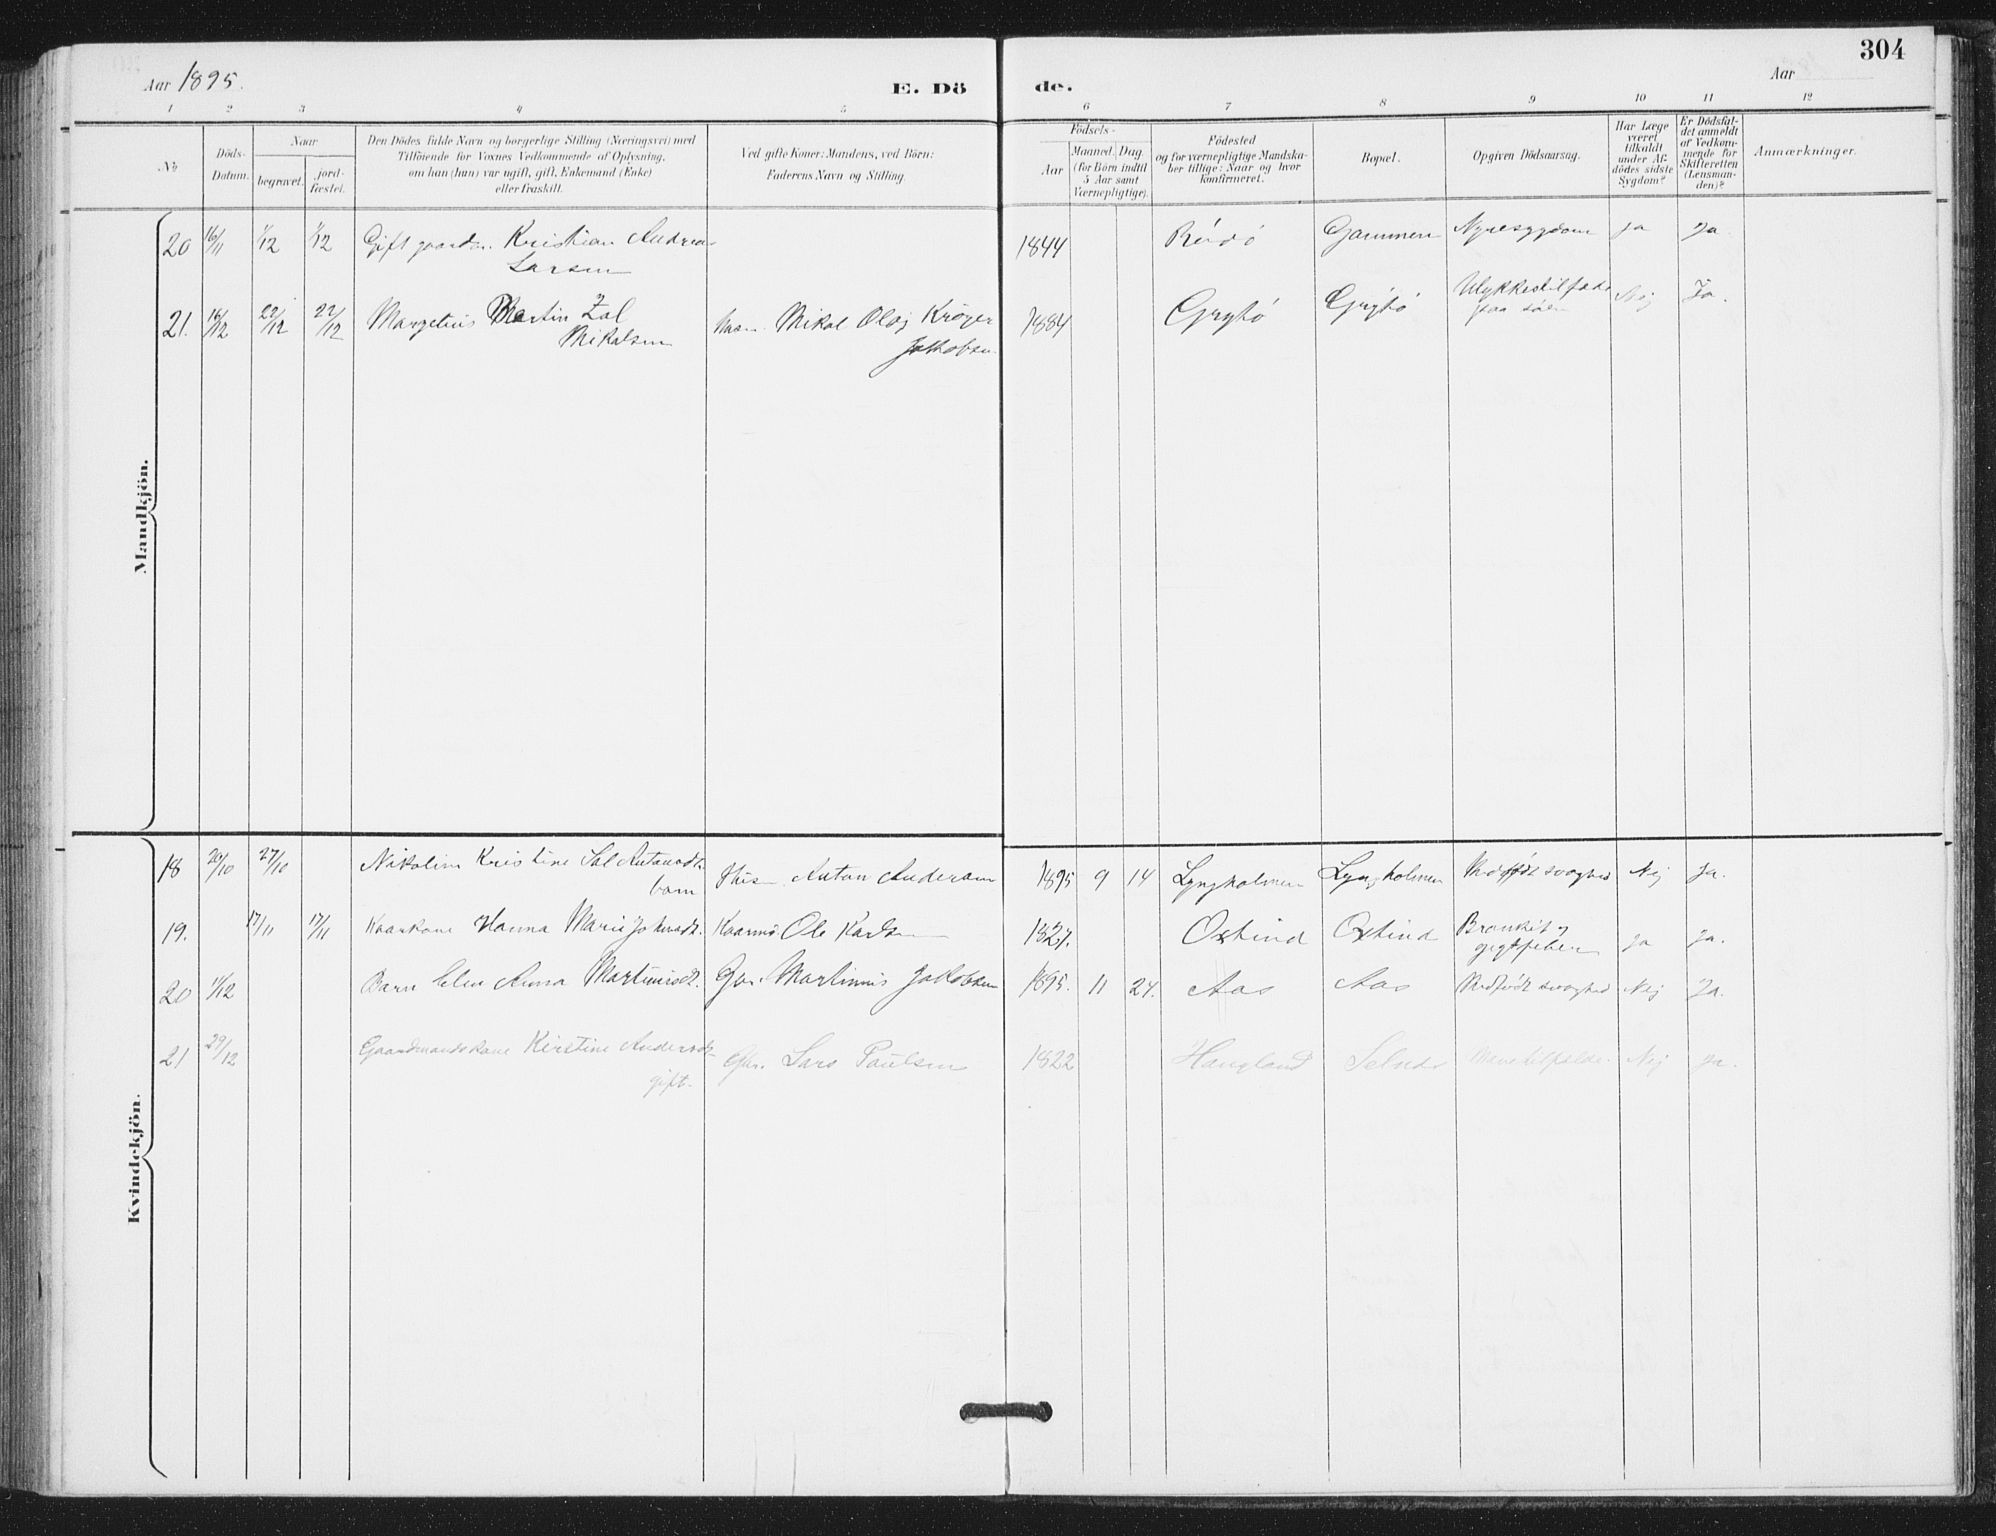 304
Aar 1895.
E. Dö
de.
Aar
1 2 3 4 5 6 7 8 9 10 11 12
No
Döds-
Datum.
Naar
begravet.
jord-
fæstet.
Den Dödes fulde Navn og borgerlige Stilling (Næringsvei) med
Tilföiende for Voxnes Vedkommende af Oplysning,
om han (hun) var ugift, gift, Enkemand (Enke)
eller fraskilt.
Ved gifte Koner: Mandens, ved Börn:
Faderens Navn og Stilling.
Födsels-
Aar
Maaned. Dag
(for Börn indtil
5 Aar samt
Værnepligtige).
Födested
og for værnepligtige Mandska-
ber tillige: Naar og hvor
konfirmeret.
Bopæl.
Opgiven Dödsaarsag.
Har Læge
været
tilkaldt
under Af-
dödes sidste
Sygdom?
Er Dödsfal-
det anmeldt
af Vedkom-
mende for
Skifteretten
(Lensman-
den)?
Anmærkninger.
Mandkjön.
20 16/11 1/12 1/12 Gift gaardm. Kristian Andreas 1844 Rödö Gammen Nyresygdom ja ja.
Larsen
21. 16/12 22/12 22/12 Margetius Martin Zal Mikal Olaj Kröger 1884 Grytö Grytö Ulykkestilfælde Nej Ja.
Mikalsen Jakobsen paa söen
Kvindekjön.
18 20/10 27/10 Nikoline Kristine Sal Antonsdt. Anton Andersen 1895 9 14 Lyngholmen Lyngholmen Medfödt svaghed Nej Ja.
barn
19. 17/11 17/11 Kaarkone Hanna Marie Johnsdt. Kaarm. Ole Karlsen 1827. Oxtind Oxtind Bronkit og ja ja.
gigtfeber
20 11/12 Barn Elen Anna Martinusdt. Gbr. Martinus Jakobsen 1895. 11 24. Aas Aas Medfödt svaghed Nej Ja.
21 29/12 Gaardmandskone Kirstine Andersdt. Gbr. Lars Paulsen 1822 Haugland Selnes Mavetilfælde. Nej ja.
gift.